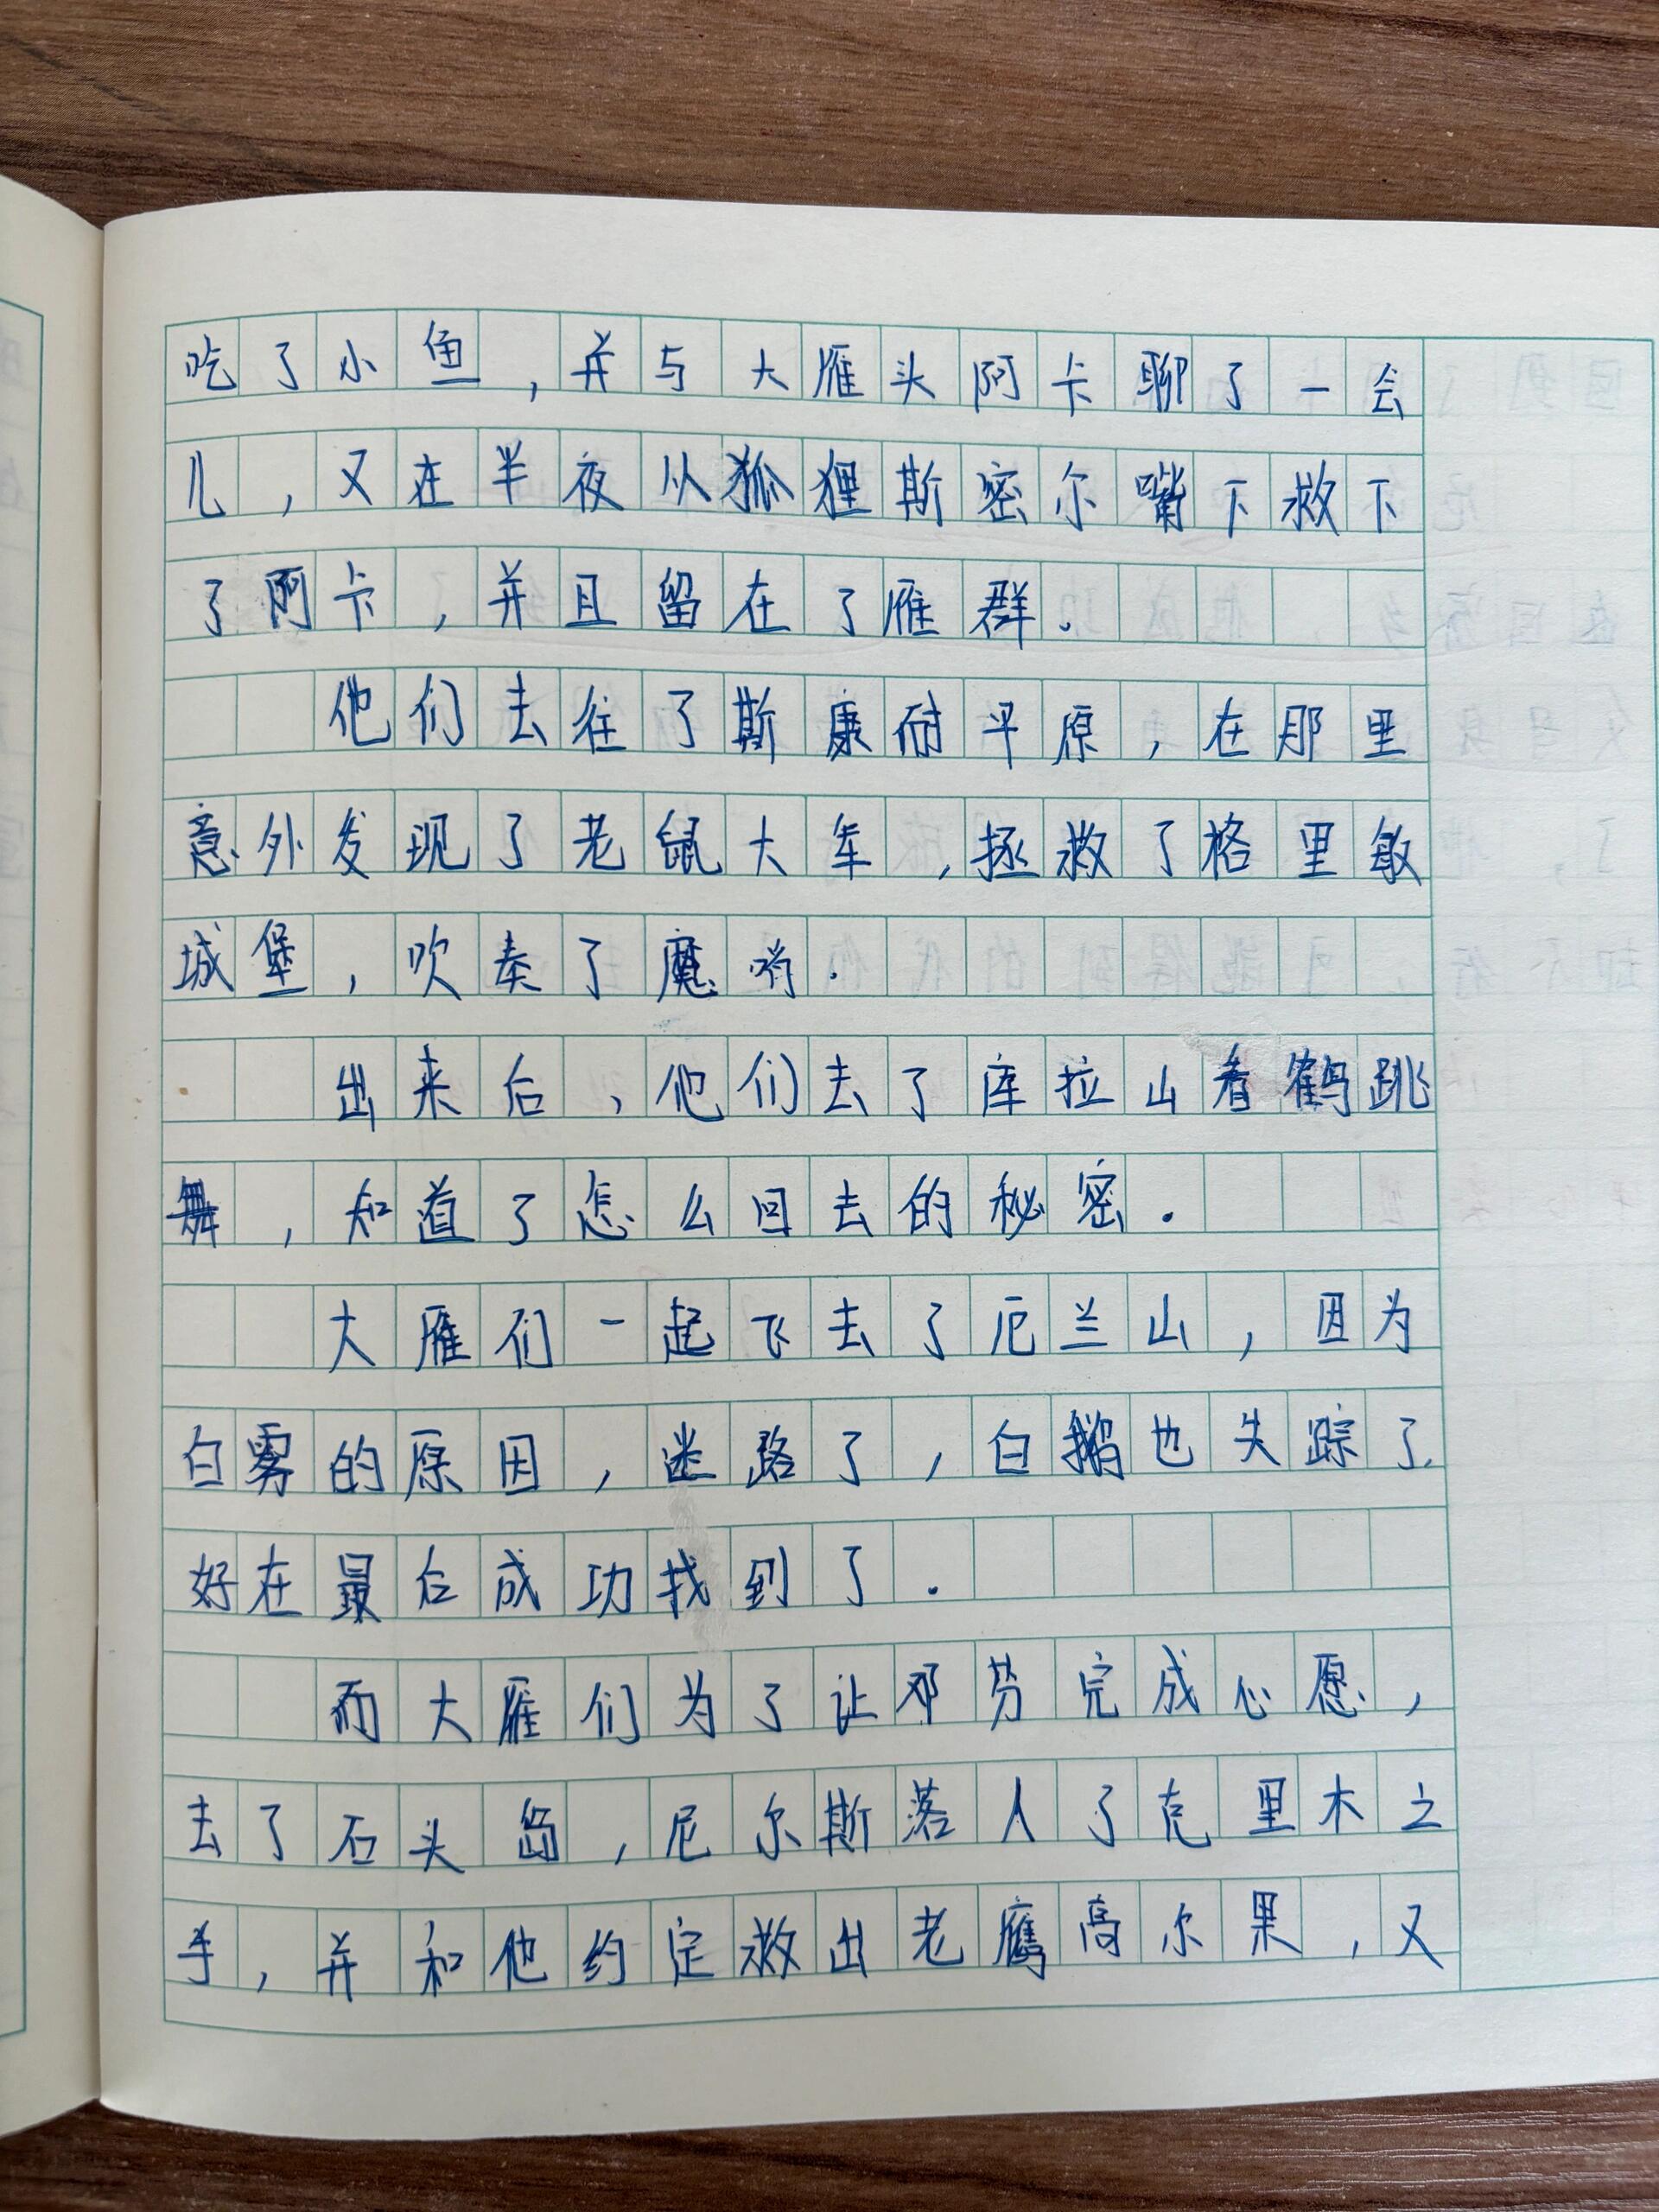 吃了小鱼，并与大雁头阿卡聊了一会
儿，又在半夜从狐狸斯密尔嘴下救下
了阿卡，并且留在了雁群.
他们去往了斯康耐平原，在那里
意外发现了老鼠大军，拯救了格里敏
城堡，吹奏了魔哨.
出来后，他们去了库拉山看鹤跳
舞，知道了怎么回去的秘密.
大雁们一起飞去了厄兰山，因为
白雾的原因，迷路了，白鹅也失踪了.
好在最后成功找到了.
而大雁们为了让邓芬完成心愿，
去了石头岛，尼尔斯落入了克里木之
手，并和他约定救出老鹰高尔果，又